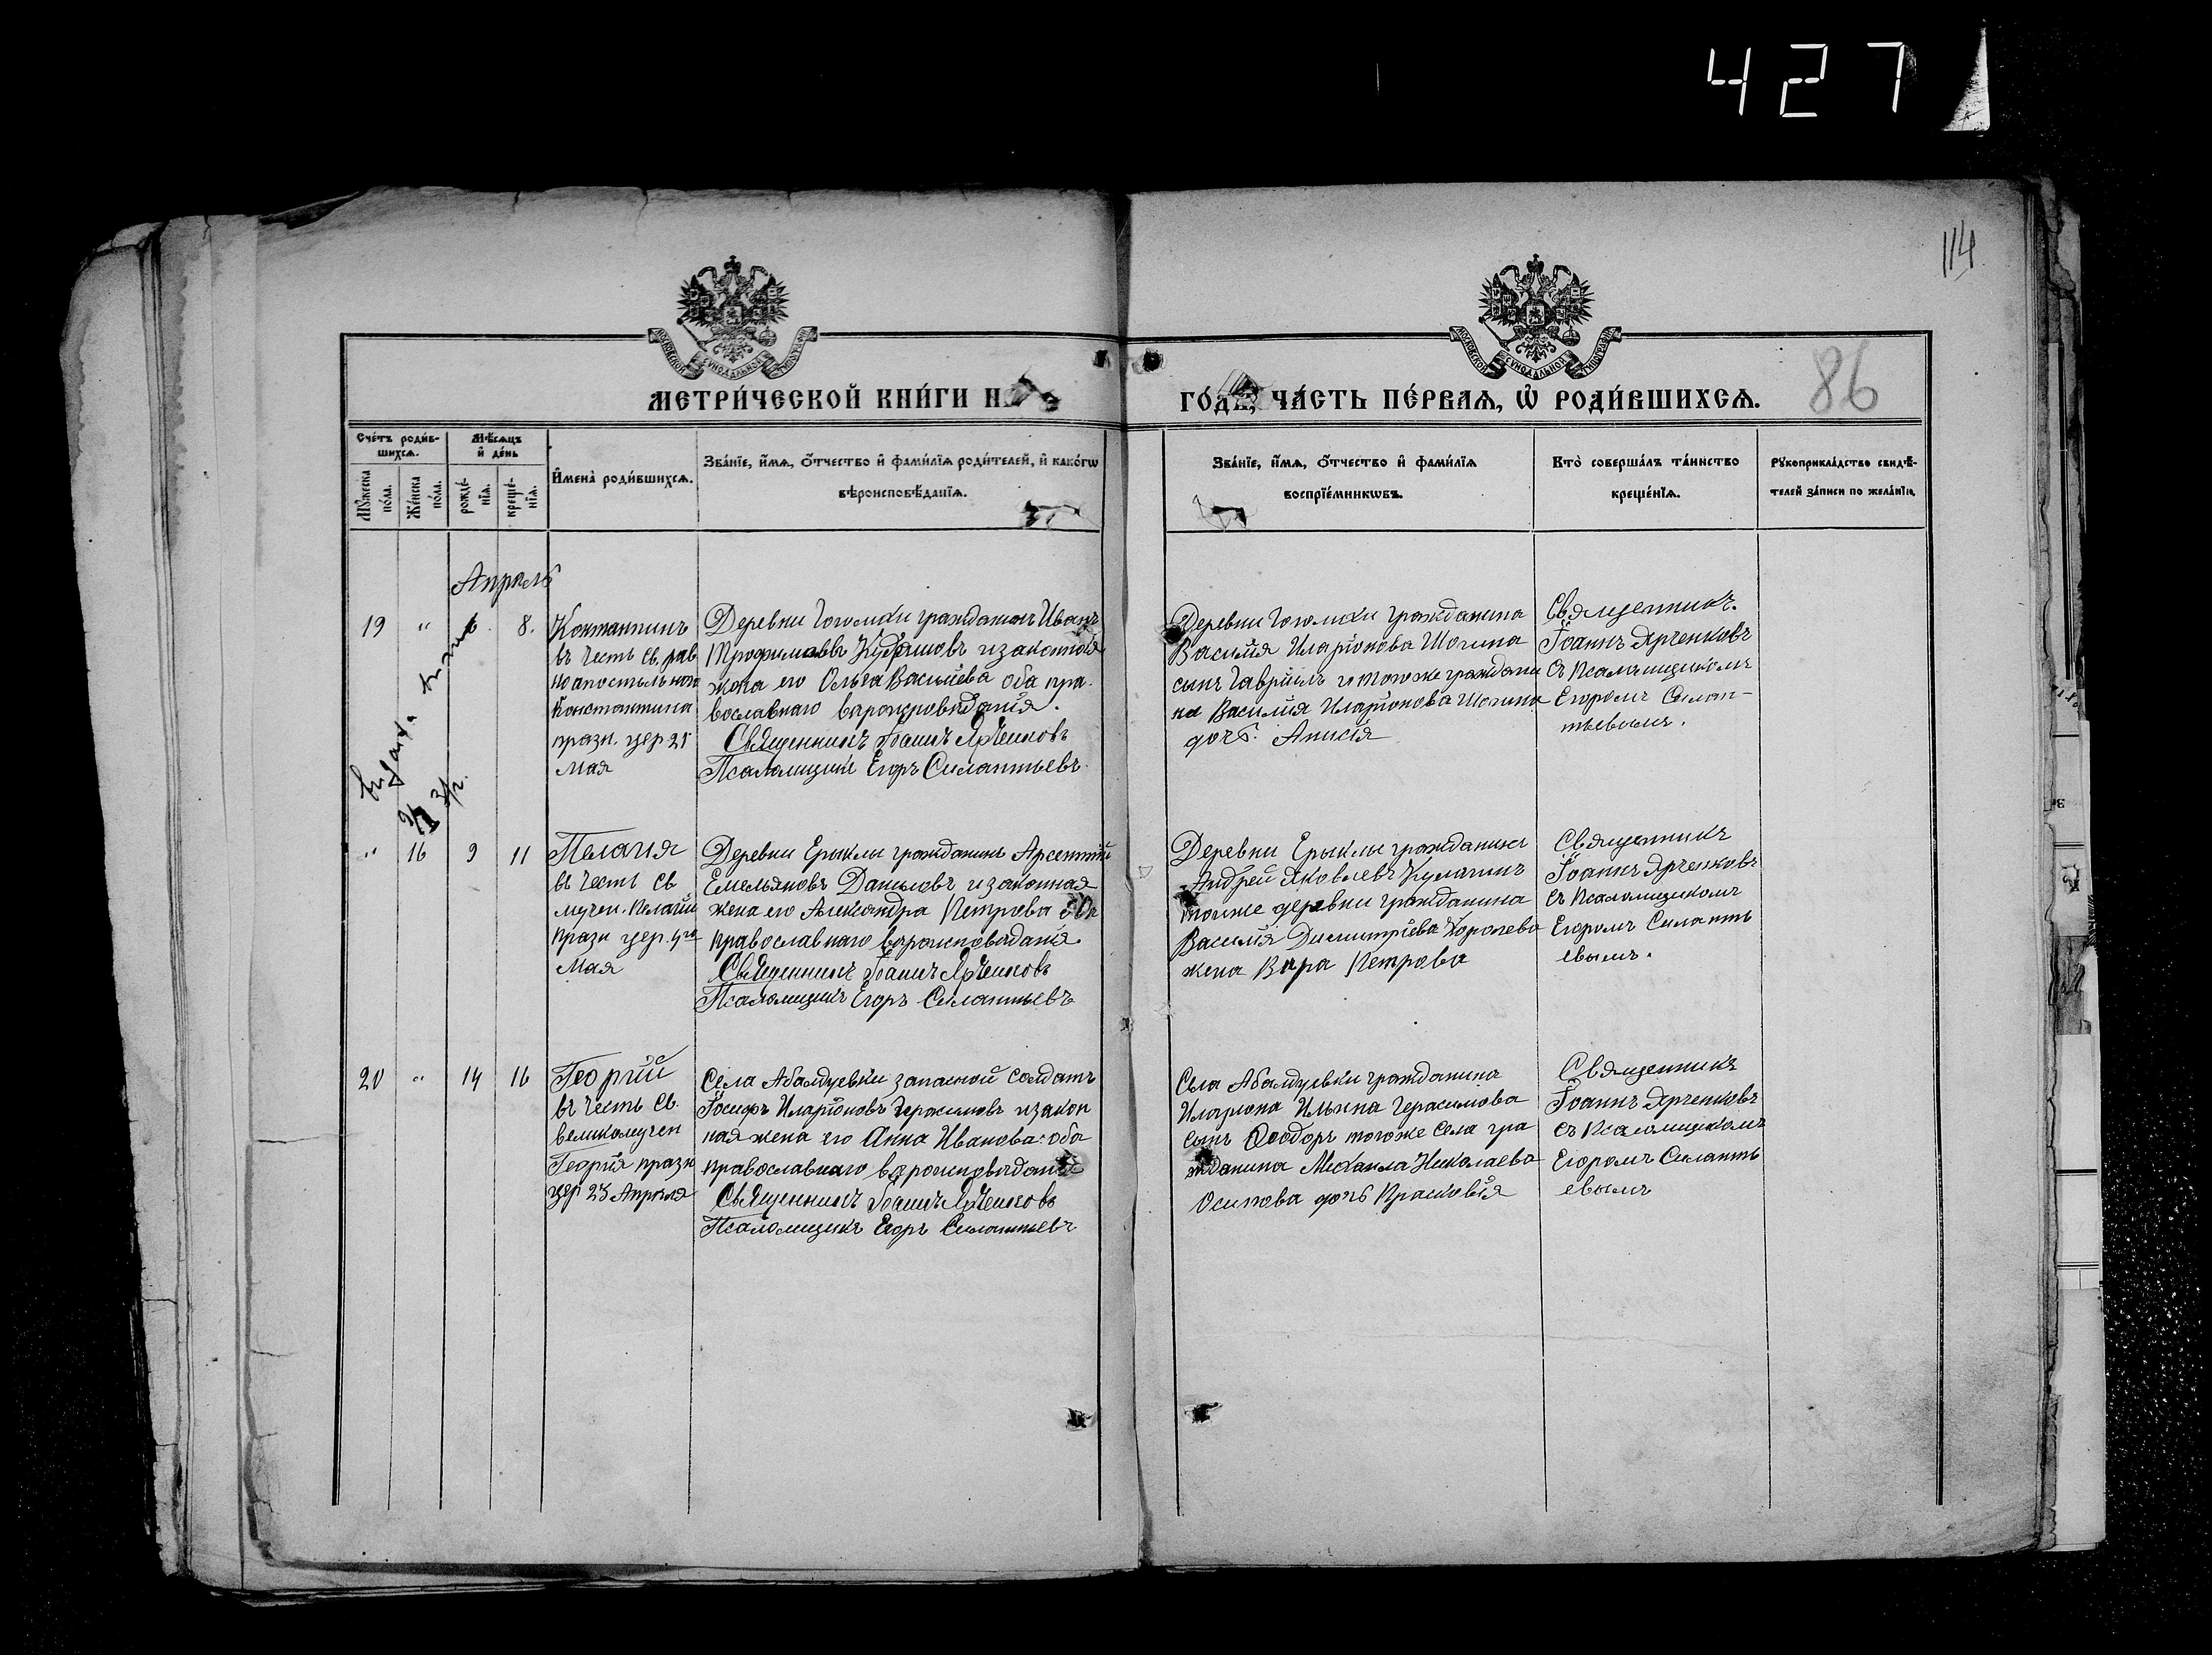 427
114
86
МОСКОВСКОЙ СУНОДАЛЬНОЙ ТИПОГРАФІИ
МОСКОВСКОЙ СУНОДАЛЬНОЙ ТИПОГРАФІИ
МЕТРИ́ЧЕСКОЙ КНИ́ГИ Н
ГО́ДЪ, ЧА́СТЬ ПЕ́РВАЯ, Ѽ РОДИ́ВШИХСЯ.
Сче́тъ роди́в-
шихся.
Мꙋ́жеска
по́ла.
Же́нска
по́ла.
Мѣ́сяцъ
и҆ де́нь
рожде́-
нїя.
креще́-
нїя.
И҆мена̀ роди́вшихся.
Зва́нїе, и҆́мя, ѻ҆́тчество и҆ фами́лїя роди́телей, и҆ како́гѡ
вѣроисповѣ́данїя.
Зва́нїе, и҆́мя, ѻ҆́тчество и҆ фами́лїя
воспрїе́мникѡвъ.
Кто̀ соверша́лъ та́инство
креще́нїя.
Рꙋкоприкла́дство свидѣ́-
телей за́писи по жела́нїю.
Апрѣль
19 " 8.
Константинъ
въ честь св. рав
ноапостольного
Константина
празн. цер 21
Мая
Деревни гражданинъ Иванъ
Трофимовъ Кудряшовъ и законная
жена его Ольга Васильева оба пра-
вославнаго вѣроисповѣданія.
Священникъ Іоаннъ Ярченковъ
Псаломщикъ Егоръ Силантьевъ.
Деревни гражданина
Василія Иларіонова Шогина
сынъ Гавріилъ и тоже граждани
на Василія Иларіонова Шогина
дочь Анисія
Священникъ.
Іоаннъ Ярченковъ
съ псаломщикомъ
Егоромъ Силан-
тьевымъ.
" 16 9 11
Пелагія
въ честь св
мучен. Пелагіи
празн цер. 4го
Мая
Деревни Ерыклы гражданинъ Арсентій
Емельяновъ Даниловъ и законная
жена его Александра Петрова оба
православнаго вѣроисповѣданія
Священникъ Іоаннъ Ярченковъ
Псаломщикъ Егоръ Силантьевъ
Деревни Ерыклы гражданинъ
Андрей Яковлевъ Кулагинъ
тоиже деревни гражданина
Василія Димитріева Королева
жена Вѣра Петрова
Священникъ
Іоаннъ Ярченковъ
съ псаломщикомъ
Егоромъ Силанть
евымъ.
20 " 14 16
Георгій
въ честь св.
великомучен
Георгія празн
цер 23 Апрѣля
Села Абалдуевки запасной солдатъ
Іосифъ Иларіоновъ Герасимовъ и закон
ная жена его Анна Иванова оба
православнаго вѣроисповѣданія
Священникъ Іоаннъ Ярченковъ
Псаломщикъ Егоръ Силантьевъ
Села Абалдуевки гражданина
Иларіона Ильина Герасимова
сынъ Ѳеодоръ тогоже села гра
жданина Михаила Николаева
Осипова дочь Прасковія
Священникъ
Іоаннъ Ярченковъ
съ псаломщикомъ
Егоромъ Силанть
евымъ